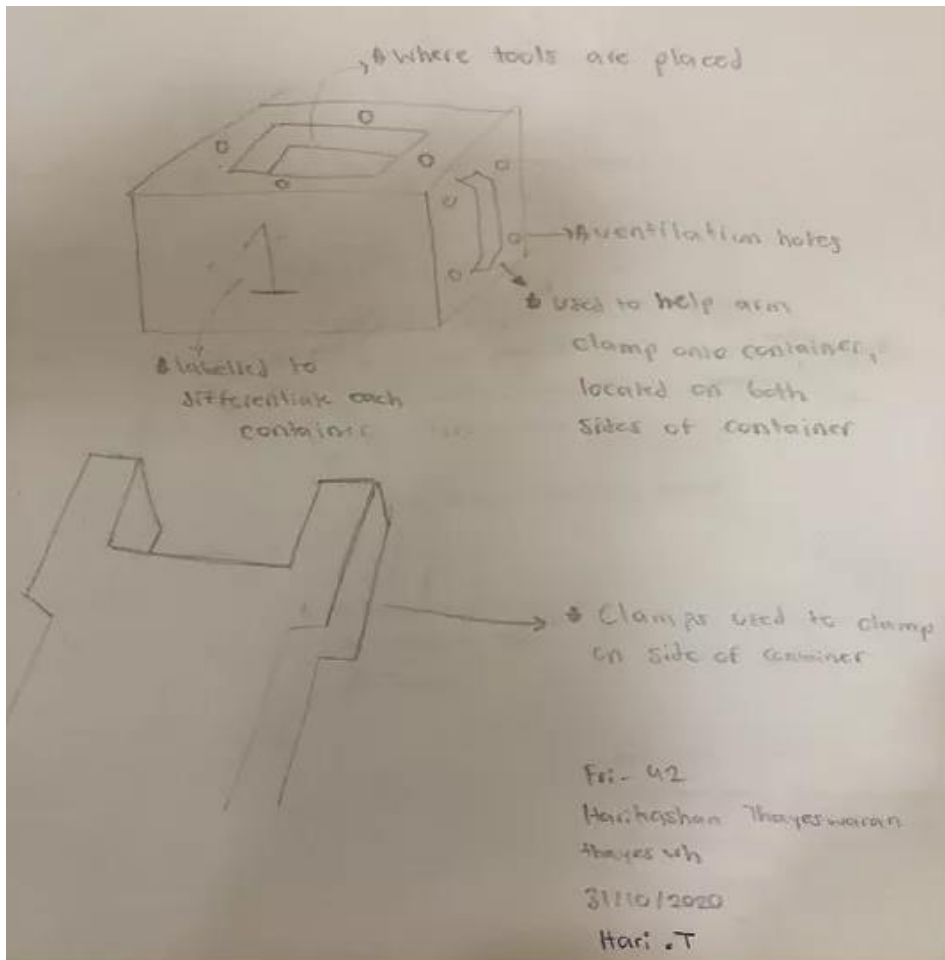 Where tools are placed
1
ventilation holes
used to help arm
clamp onto container,
located on both
sides of container
labelled to
differentiate each
container
Clamps used to clamp
on side of container
Fri - 42
Harihashan Thayeswaran
thayeswh
31/10/2020
Hari .T